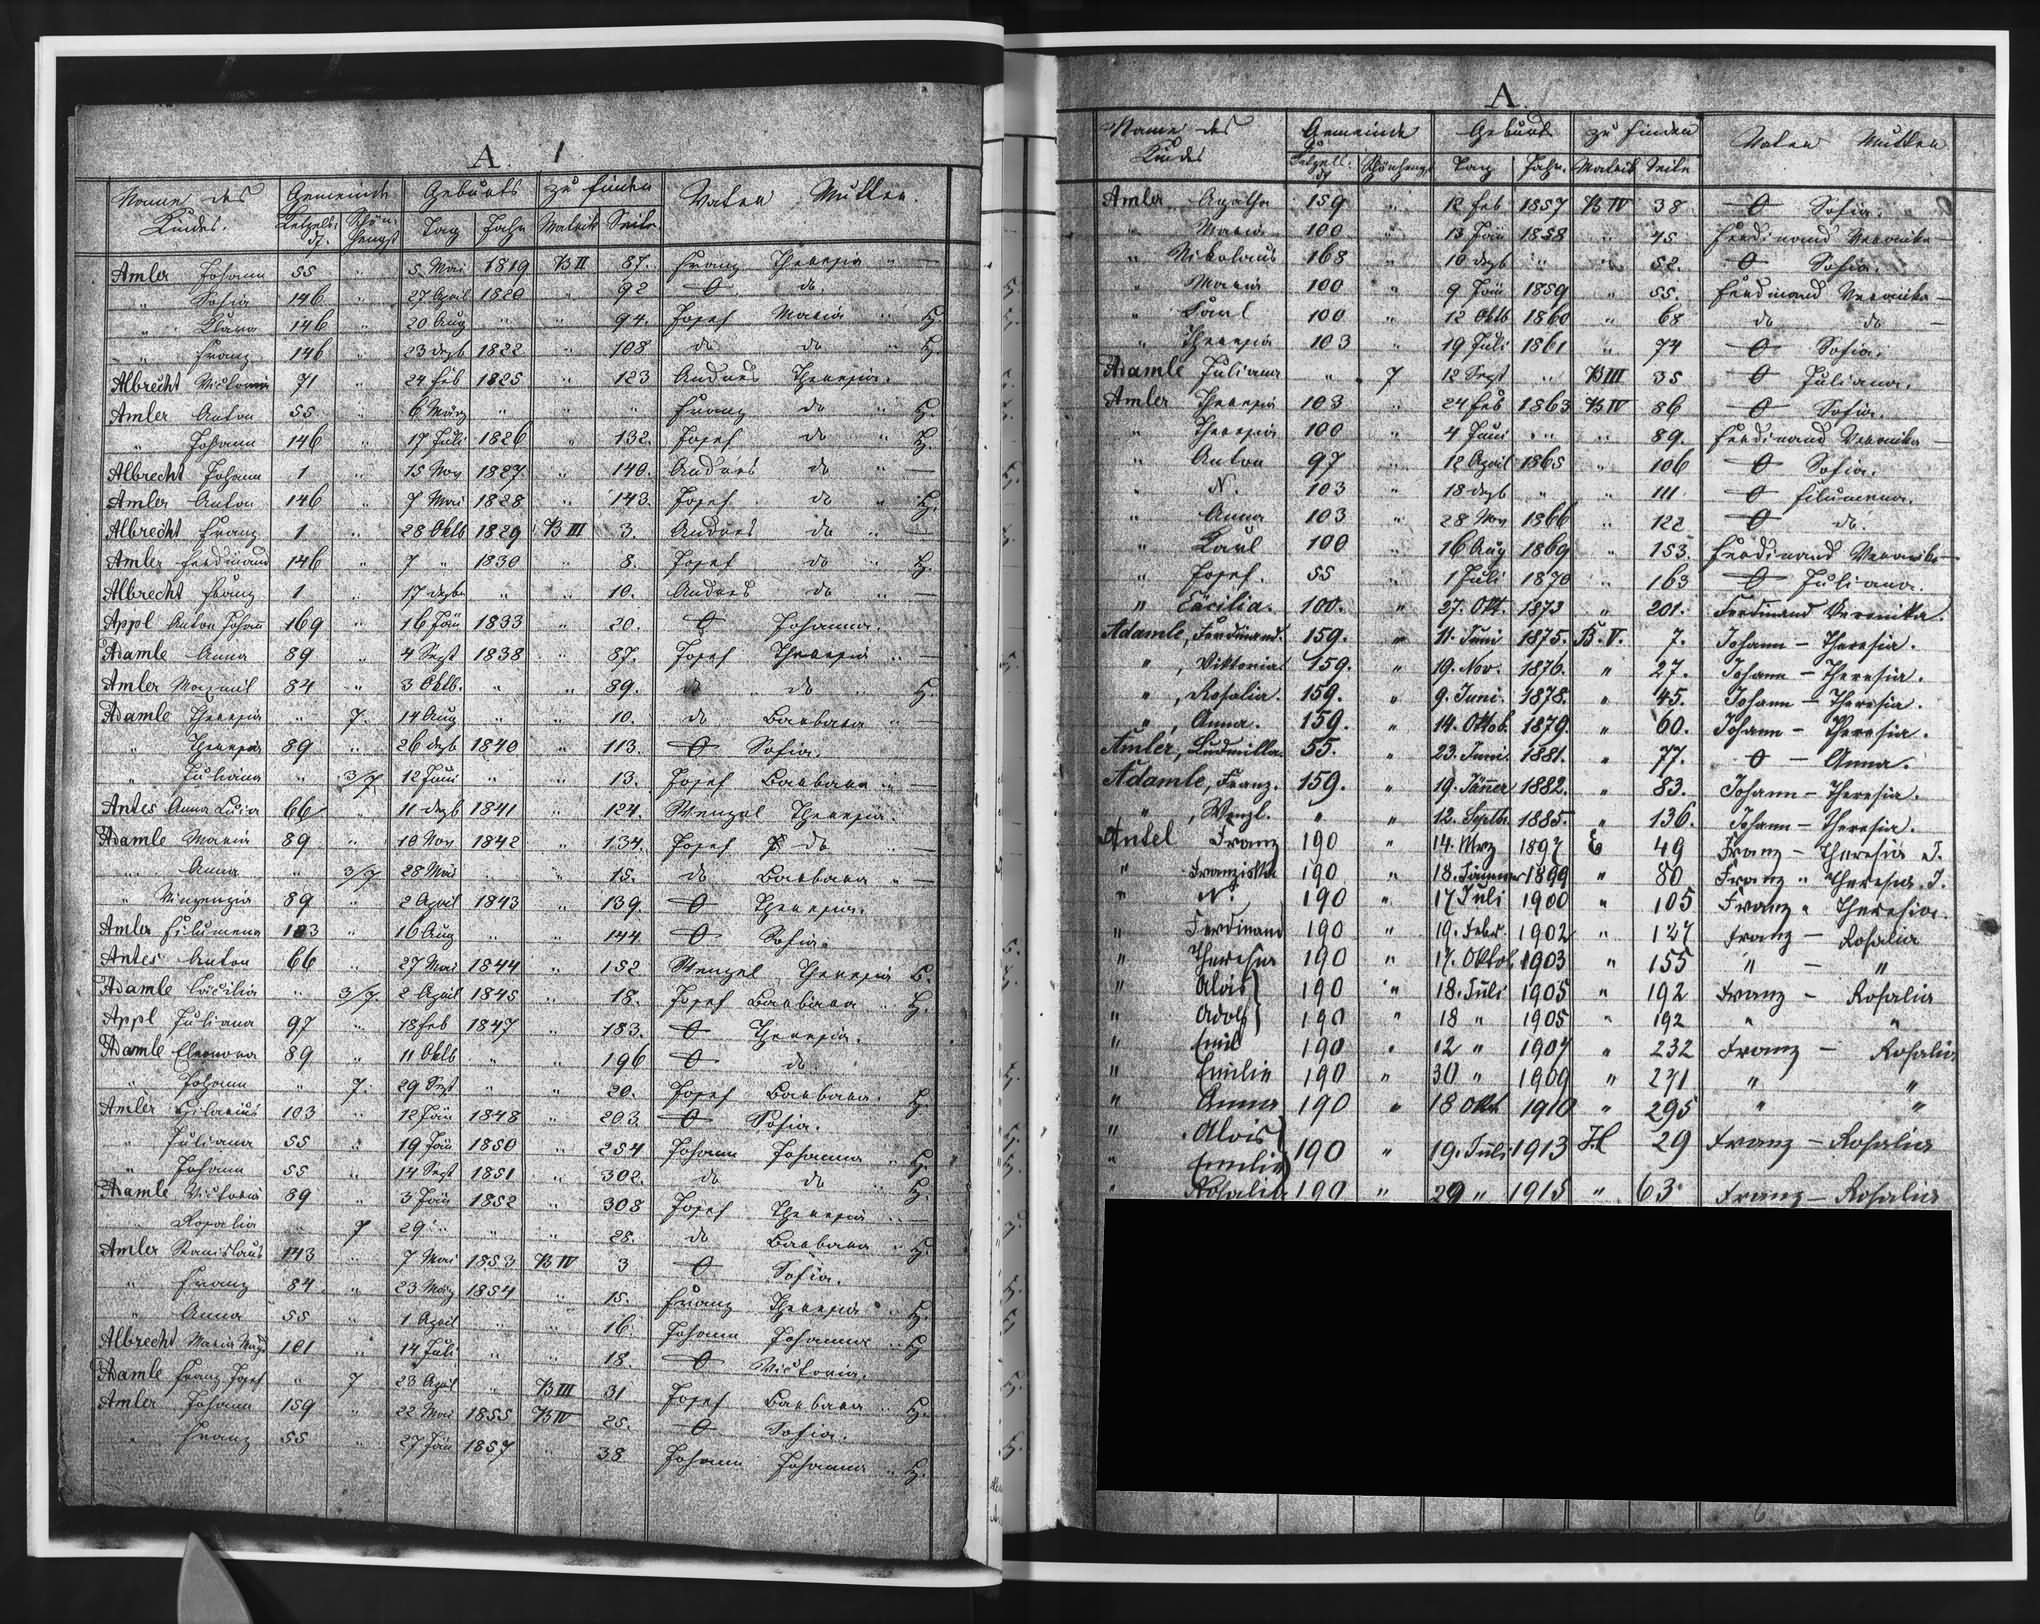 A. 1
Name des Kindes. Gemeinde Geburts zu finden Vater Mutter.
Ketzels- df. Schön- hengst Tag Jahr Matrik Seite.
Amler Johann 55 " 5 Mai 1819 B II 87. Franz Theresia " —
" Sofia 146 " 27 April 1820 " 92 O do.
" Klara 146 " 20 Aug " " 94. Josef Maria " H.
" Franz 146 " 23 dezb 1822 " 108 do do " H.
Albrecht Victoria 71 " 24 Feb 1825 " 123 Andres Theresia. —
Amler Anton 55 " 6 März " " " Franz do " H.
" Johann 146 " 17 Juli 1826 " 132. Josef do " H.
Albrecht Johann 1 " 15 Nov 1827 " 140. Andres do " —
Amler Anton 146 " 7 Mai 1828 " 143. Josef do " H.
Albrecht Franz 1 " 28 Oktb 1829 B III 3. Andres do " —
Amler Ferdinand 146 " 7 " 1830 " 8. Josef do " H.
Albrecht Franz 1 " 17 dezbr " " 10. Andres do " —
Appl Anton Johann 169 " 16 Jän 1833 " 20. O Johanna.
Adamle Anna 89 " 4 Sept 1838 " 87. Josef Theresia " —
Amler Maxmil 84 " 3 Oktb. " " 89. do do " H.
Adamle Theresia " 7. 14 Aug " " 10. do Barbara " —
" Theresia 89 " 26 dezb 1840 " 113. O Sofia.
" Juliana " 3/7 12 Juni " " 13. Josef Barbara " —
Antes Anna Luzia 66 " 11 dezb 1841 " 124. Wenzel Theresia.
Adamle Maria 89 " 10 Nov 1842 " 134. Josef do " —
" Anna " 3/7 28 Mai " " 15. do Barbara " —
" Vinzenzia 89 " 2 April 1843 " 139. O Theresia.
Amler Filumena 103 " 16 Aug " " 144 O Sofia.
Antes Anton 66 " 27 Mai 1844 " 152 Wenzel Theresia
Adamle Cäcilia " 3/7. 2 April 1845 " 18. Josef Barbara " H.
Appl Juliana 97 " 18 Feb 1847 " 183. O Theresia.
Adamle Eleonora 89 " 11 Oktb " " 196 O do.
" Johann " 7. 29 Sept " " 20. Josef Barbara. H.
Amler Hilarius 103 " 12 Jän 1848 " 203. O Sofia.
" Juliana 55 " 19 Jän 1850 " 254 Johann Johanna H.
" Johann 55 " 14 Sept 1851 " 302. do do " H.
Adamle Victoria 89 " 3 Jän 1852 " 308 Josef Theresia " —
" Rosalia " 7 29 " " " 28. do Barbara " H.
Amler Stanislaus 143 " 7 Mai 1853 B IV 3 O Sofia.
" Franz 84. " 23 März 1854 " 15. Franz Theresia " H.
" Anna 55 " 1 April " " 16. Johann Johanna " H
Albrecht Maria Magd 101 " 14 Juli " " 18. O Victoria.
Adamle Franz Josef " 7 23 April " B III 31 Josef Barbara " H.
Amler Johann 159 " 22 Mai 1855 B IV 25. O Sofia.
" Franz 55 " 27 Jän 1857 " 38 Johann Johanna " H.
A.
Name des Kindes Gemeinde Geburt zu finden Vater Mutter
Ketzels- df Schönhengst Tag Jahr. Matrik Seite
Amler Agatha 159 " 12 Feb 1857 B IV 38 O Sofia.
" Maria 100 " 13 Jän 1858 " 45 Ferdinand Veronika —
" Nikolaus 168 " 10 dezb " " 52. O Sofia.
" Maria 100 " 9 Jän 1859 " 55. Ferdinand Veronika —
" Karl 100 " 12 Oktb 1860 " 68 do do —
" Theresia 103 " 19 Juli 1861 " 74 O Sofia.
Adamle Juliana " 7 12 Sept " B III 35 O Juliana.
Amler Theresia 103 " 24 Feb 1863 B IV 86 O Sofia.
" Theresia 100 " 4 Juni " " 89. Ferdinand Veronika —
" Anton 97 " 12 April 1865 " 106 O Sofia.
" N. 103 " 18 dezb " " 111 O Filumena.
" Anna 103 " 28 Nov 1866 " 122 O do.
" Karl 100 " 16 Aug 1869 " 153. Ferdinand Veronika —
" Josef. 55 " 1 Juli 1870 " 163 O Juliana.
" Cäcilia. 100. " 27. Okt. 1873 " 201. Ferdinand Veronika.
Adamle, Ferdinand. 159. " 11. Juni 1875. B. V. 7. Johann – Theresia.
" , Viktoria. 159. " 19. Nov. 1876. " 27. Johann – Theresia.
" , Rosalia. 159. " 9. Juni. 1878. " 45. Johann – Theresia.
" , Anna. 159. " 14. Oktob. 1879. " 60. Johann – Theresia.
Amler, Ludmilla. 55. " 23. Juni. 1881. " 77. O – Anna.
Adamle, Franz. 159. " 19. Jänner 1882. " 83. Johann – Theresia.
" , Wenzl. " " 12. Septb. 1885. " 136. Johann – Theresia.
Antel Franz 190 " 14. Mrz 1897 E 49 Franz – Theresia J.
" Franziska 190 " 18. Jänner 1899 " 80 Franz " Theresia J.
" N. 190 " 17 Juli 1900 " 105 Franz " Theresia.
" Ferdinand 190 " 19. Febr. 1902 " 127 Franz – Rosalia
" Theresia 190 " 17. Oktob. 1903 " 155 " – "
" Alois 190 " 18. Juli 1905 " 192 Franz – Rosalia
" Adolf 190 " 18 " 1905 " 192 " "
" Emil 190 " 12 " 1907 " 232 Franz – Rosalia
" Emilie 190 " 30 " 1909 " 271 " "
" Anna 190 " 18 Okt 1910 " 295 " "
" Alois
" Emilie 190 " 19. Juli 1913 H 29 Franz – Rosalia
" Rosalia 190 " 29 " 1915 " 63. Franz – Rosalia